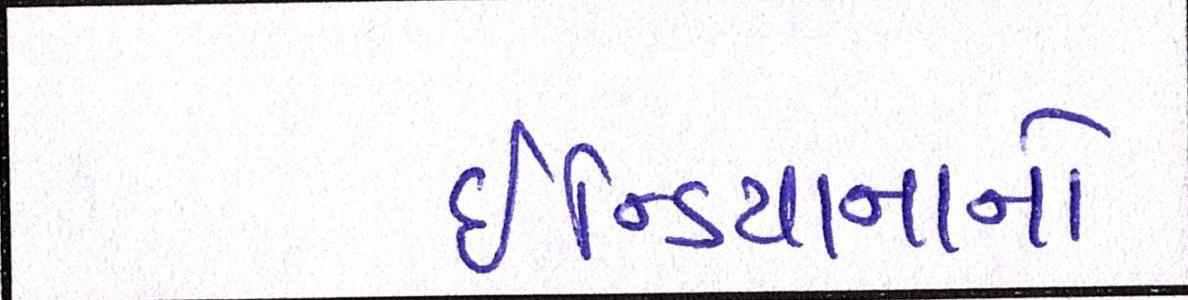 ઈન્ડિયાનાનો